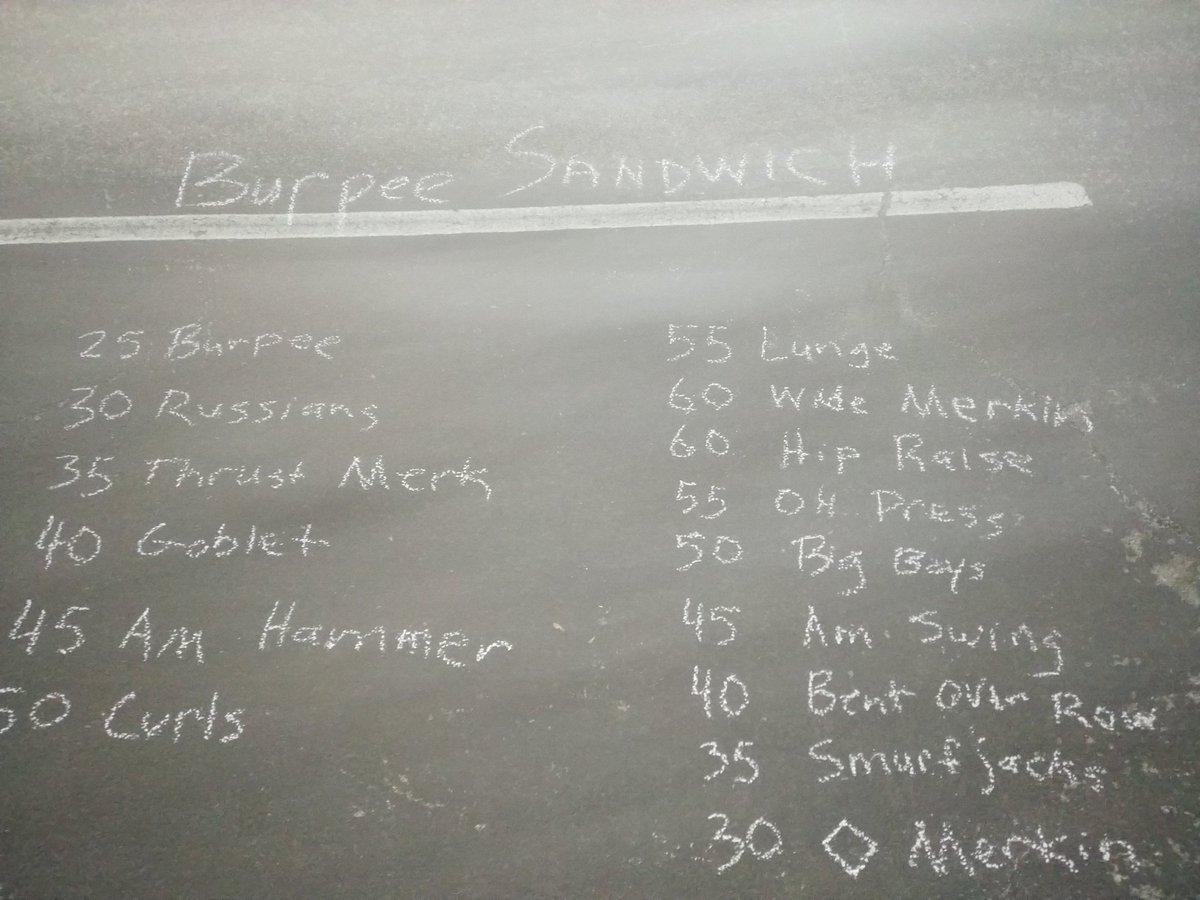 Burpee SANDWICH
25 Burpee
30 Russians
35 Thrust Merk
40 Goblet
45 Am Hammer
50 Curls
55 Lunge
60 Wide Merkin
60 Hip Raise
55 OH Press
50 Big Boys
45 Am. Swing
40 Bent Over Row
35 Smurfjacks
30 ◇ Merkin